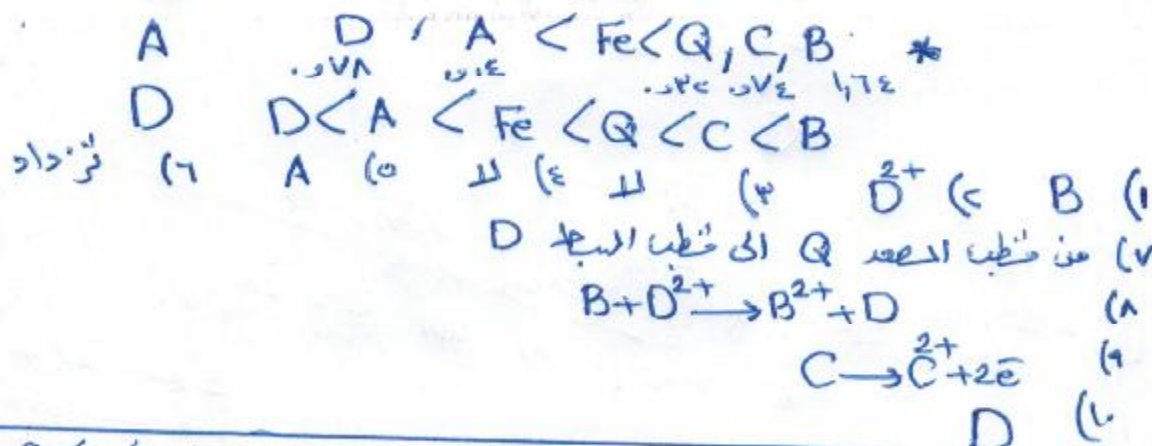 A D , A < Fe < Q, C, B *
٠,٧٨ ٠,١٤ ٠,٣٢ ٠,٧٤ ١,٦٤
D D < A < Fe < Q < C < B
١) B ٢) D²⁺ ٣) لا ٤) لا ٥) A ٦) تزداد
٧) من قطب المصعد Q الى قطب المهبط D
٨) B + D²⁺ → B²⁺ + D
٩) C → C²⁺ + 2e⁻
١٠) D